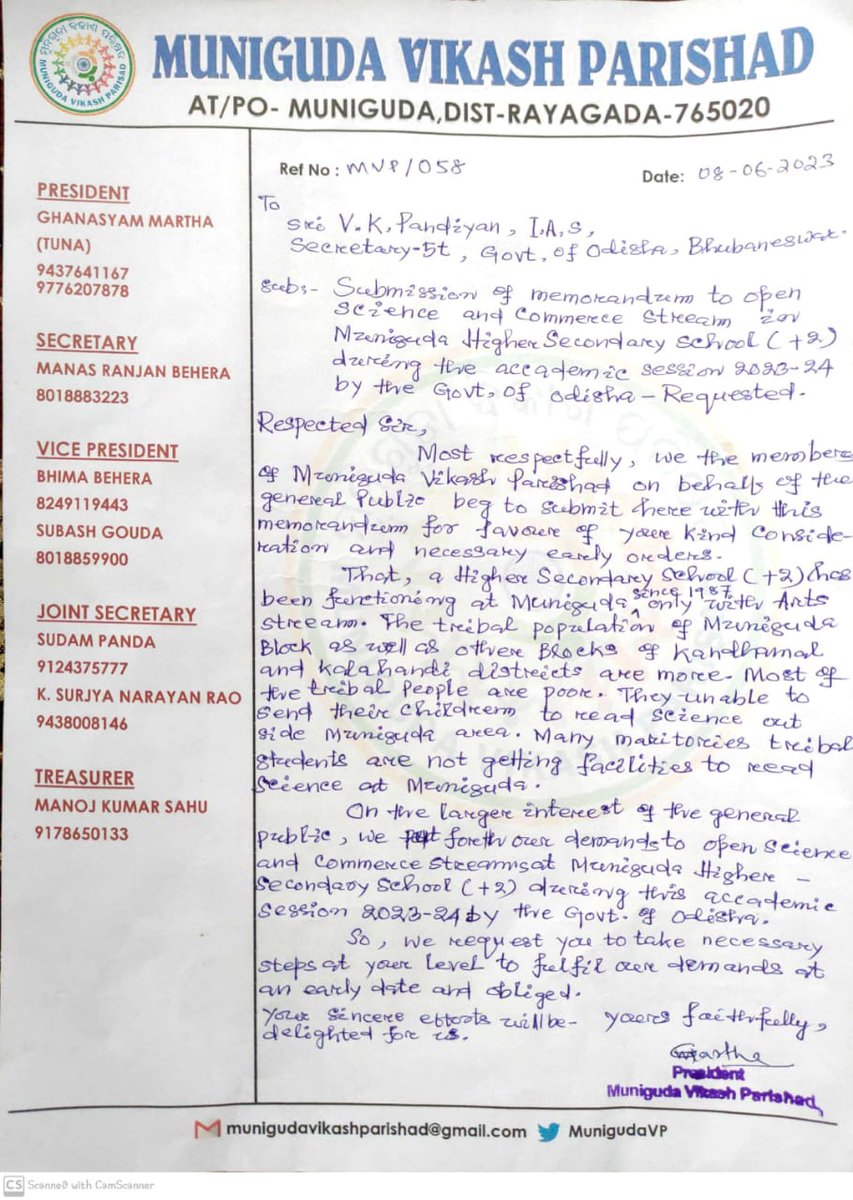 ମୁନିଗୁଡ଼ା ବିକାଶ ପରିଷଦ
MUNIGUDA VIKASH PARISAD
MUNIGUDA VIKASH PARISHAD
AT/PO- MUNIGUDA,DIST-RAYAGADA-765020
Ref No : MVP/058
Date: 08-06-2023
PRESIDENT
GHANASYAM MARTHA
(TUNA)
9437641167
9776207878
SECRETARY
MANAS RANJAN BEHERA
8018883223
VICE PRESIDENT
BHIMA BEHERA
8249119443
SUBASH GOUDA
8018859900
JOINT SECRETARY
SUDAM PANDA
9124375777
K. SURJYA NARAYAN RAO
9438008146
TREASURER
MANOJ KUMAR SAHU
9178650133
To
Sri V.K. Pandiyan, I.A.S,
Secretary-5t, Govt. of Odisha, Bhubaneswar.
Sub:- Submission of memorandum to open
Science and Commerce Stream in
Muniguda Higher Secondary School (+2)
during the accademic session 2023-24
by the Govt. of Odisha - Requested.
Respected Sir,
Most respectfully, we the members
of Muniguda Vikash Parishad on behalf of the
general Public beg to submit here with this
memorandum for favour of your kind conside-
ration and necessary early orders.
That, a Higher Secondary School (+2) has
been functioning at Muniguda since 1987 only with Arts
stream. The tribal population of Muniguda
Block as well as other Blocks of Kandhamal
and Kalahandi districts are more. Most of
the tribal people are poor. They unable to
send their children to read science out
side Muniguda area. Many maritories tribal
students are not getting facilities to read
science at Muniguda.
On the larger interest of the general
public, we put forth our demands to open science
and Commerce Streams at Muniguda Higher -
Secondary School (+2) during this accademic
session 2023-24 by the Govt. of Odisha.
So, we request you to take necessary
steps at your level to fulfil our demands at
an early date and obliged.
Your sincere efforts will be- yours faithfully,
delighted for us.
President
Muniguda Vikash Parishad,
munigudavikashparishad@gmail.com MunigudaVP
CS Scanned with CamScanner